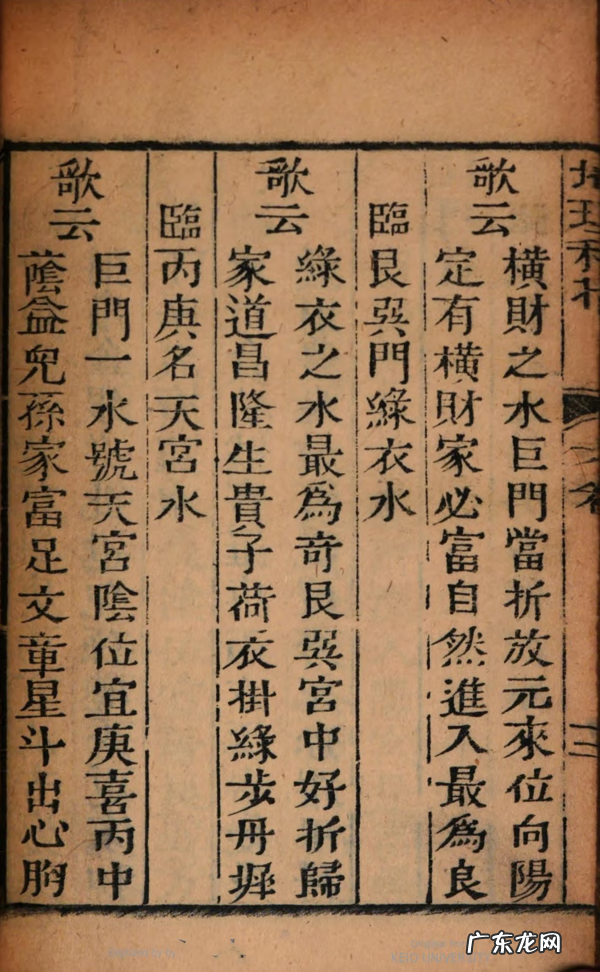 歌云
橫財之水巨門當折放元來位向陽
定有橫財家必富自然進入最爲良
臨艮巽門綠衣水
歌云
綠衣之水最爲奇艮巽宮中好折歸
家道昌隆生貴子荷衣掛綠步丹墀
臨丙庚名天宮水
歌云
巨門一水號天宮陰位宜庚喜丙中
蔭益兒孫家富足文章星斗出心胸
广东龙网